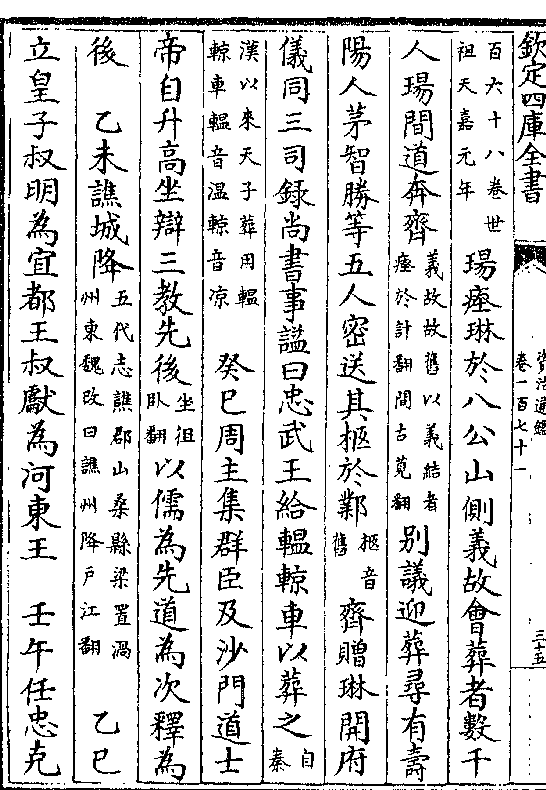 欽定四庫全書
資治通鑑
卷一百七十一
三十五
百六十八卷世
祖天嘉元年
瑒瘞琳於八公山側義故會葬者數千
人瑒間道奔齊
義故故舊以義結者
瘞於計翻間古莧翻
别議迎葬尋有壽
陽人茅智勝等五人密送其柩於鄴
柩音
舊
齊贈琳開府
儀同三司錄尚書事謚曰忠武王給轀輬車以葬之
自
秦
漢以來天子葬用轀
輬車轀音温輬音凉
癸巳周主集群臣及沙門道士
帝自升髙坐辯三教先後
坐徂
卧翻
以儒為先道為次釋為
後
乙未譙城降
五代志譙郡山桑縣梁置渦
州東魏改曰譙州降戸江翻
乙巳
立皇子叔明為宜都王叔獻為河東王
壬午任忠克